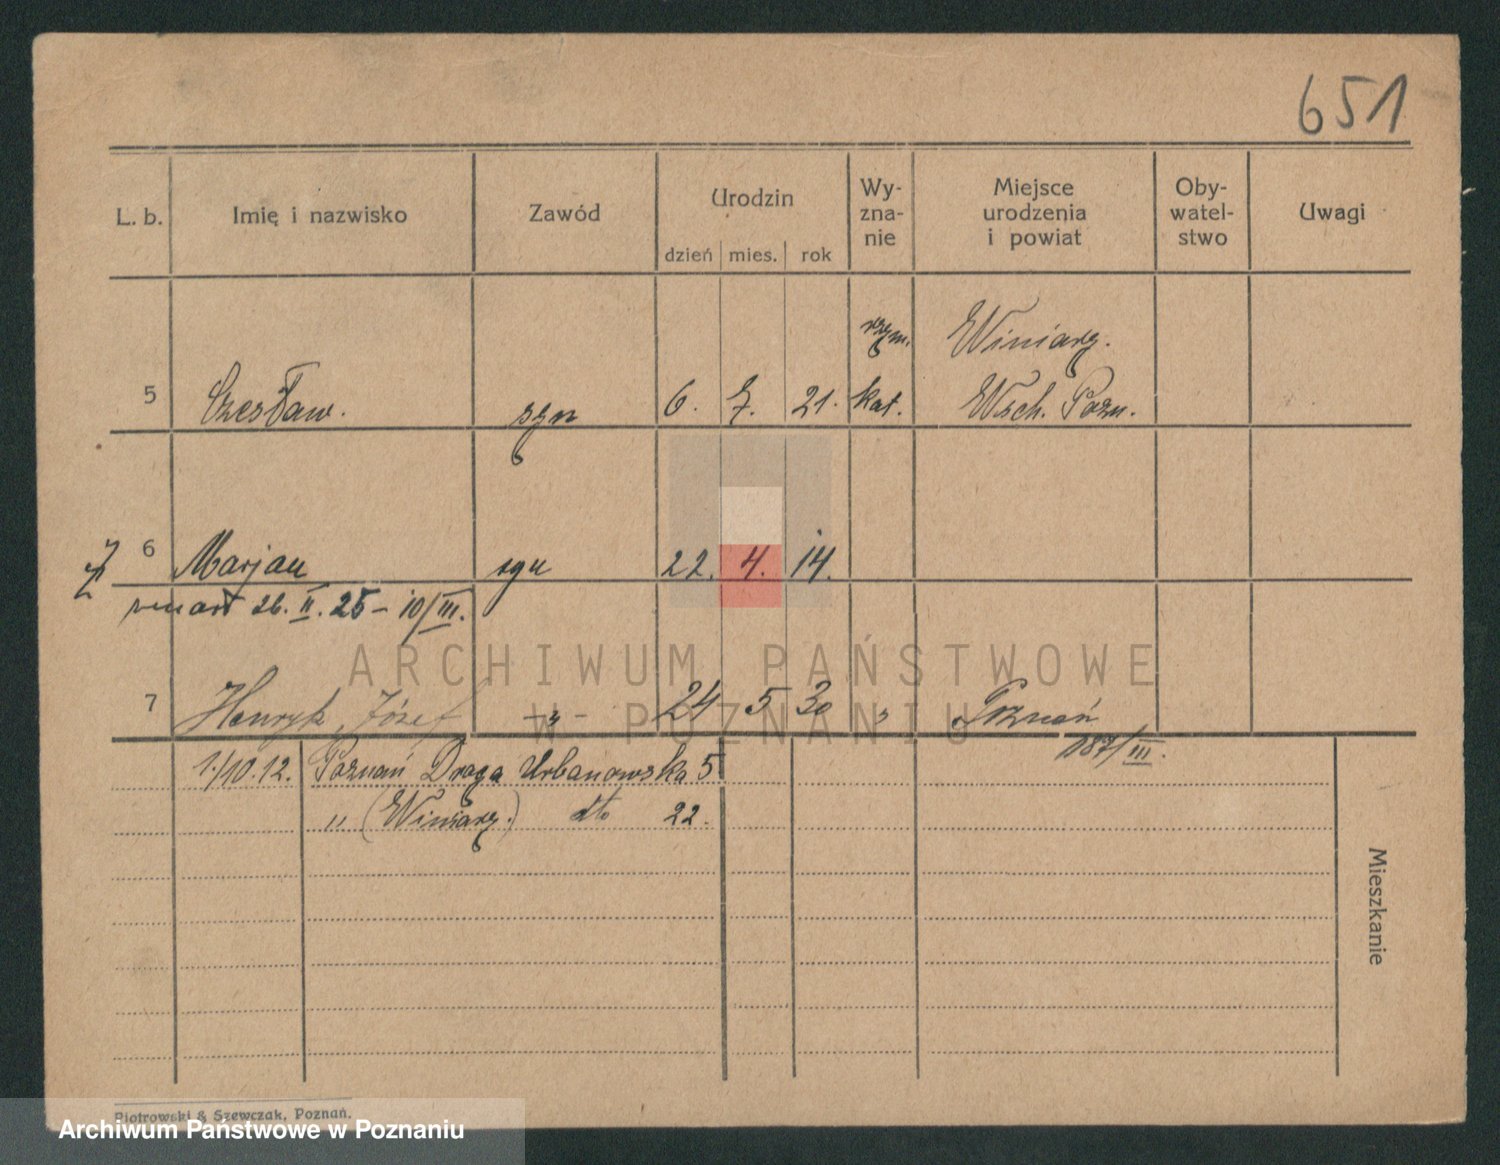 651
L. b. Imię i nazwisko Zawód Urodzin Wy-zna-nie Miejsce urodzenia i powiat Oby-watel-stwo Uwagi
dzień mies. rok
rzym. Winiarg.
5 Czesław. syn 6. 7. 21. kat. Wsch. Pozn.
6 Marjan syn 22. 4. 14.
zmarł 26. II. 25 – 10/III.
ARCHIWUM PAŃSTWOWE
W POZNANIU
7 Henryk Józef -„- 24 5 30 „ Poznań
187/III.
1./10.12. Poznań Droga Urbanowska 5
„ (Winiarg.) dto 22.
Mieszkanie
Piotrowski & Szewczak, Poznań.
Archiwum Państwowe w Poznaniu